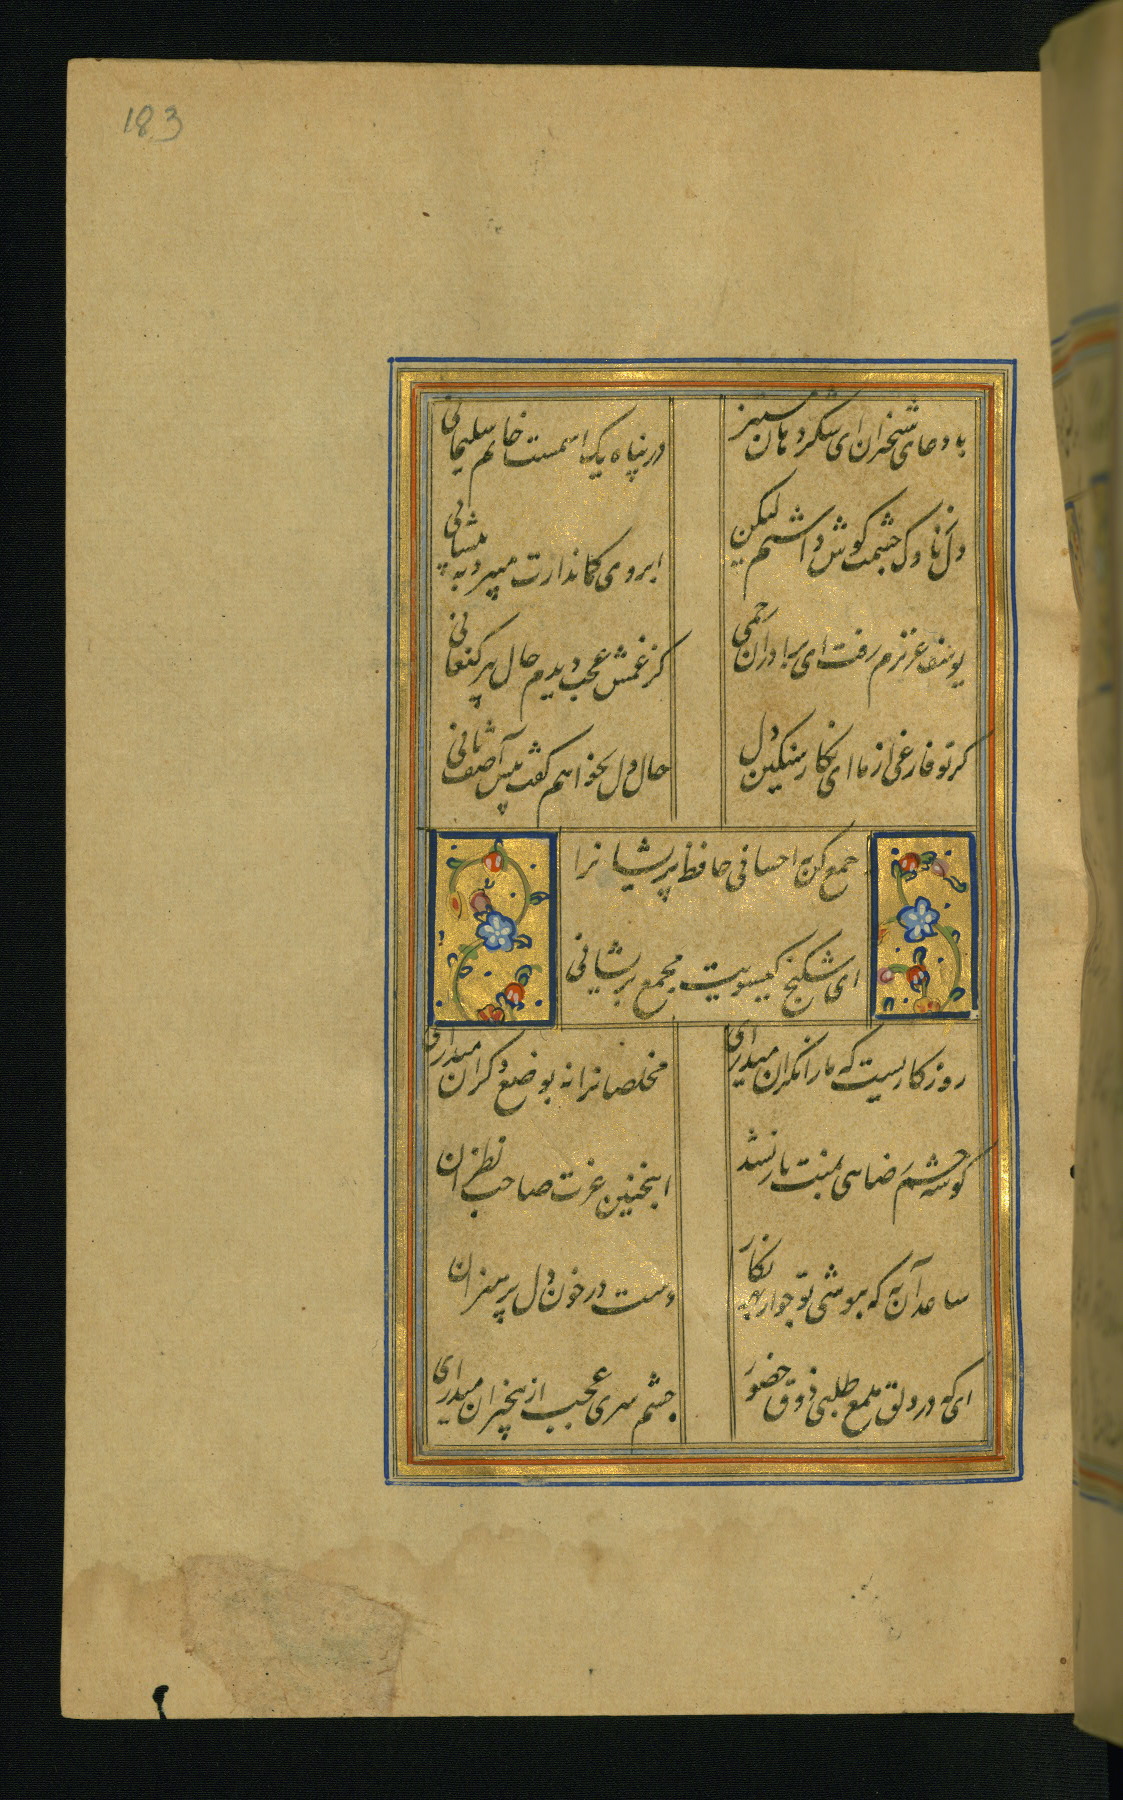 183
با دعای شبخیزان ای شکردهان مستیز
در پناه یک اسمست خاتم سلیمانی
دل ز ناوک چشمت گوش داشتم لیکن
ابروی کماندارت میبرد به پیشانی
یوسف عزیزم رفت ای برادران رحمی
کز غمش عجب دیدم حال پیر کنعانی
گر تو فارغی از ما ای نگار سنگین دل
حال دل بخواهم گفت پیش آصف ثانی
جمع کن به احسانی حافظ پریشانرا
ای شکنج گیسویت مجمع پریشانی
روزگاریست که ما را نگران میداری
مخلصانرا نه بوضع دگران میداری
گوشه چشم رضایی بمنت باز نشد
اینچنین عزت صاحب نظران
ساعد آن به که بپوشی تو چو از بهر نگار
دست در خون دل پر هنران
ای که در دلق ملمع طلبی ذوق حضور
چشم سری عجب از بیخبران میداری